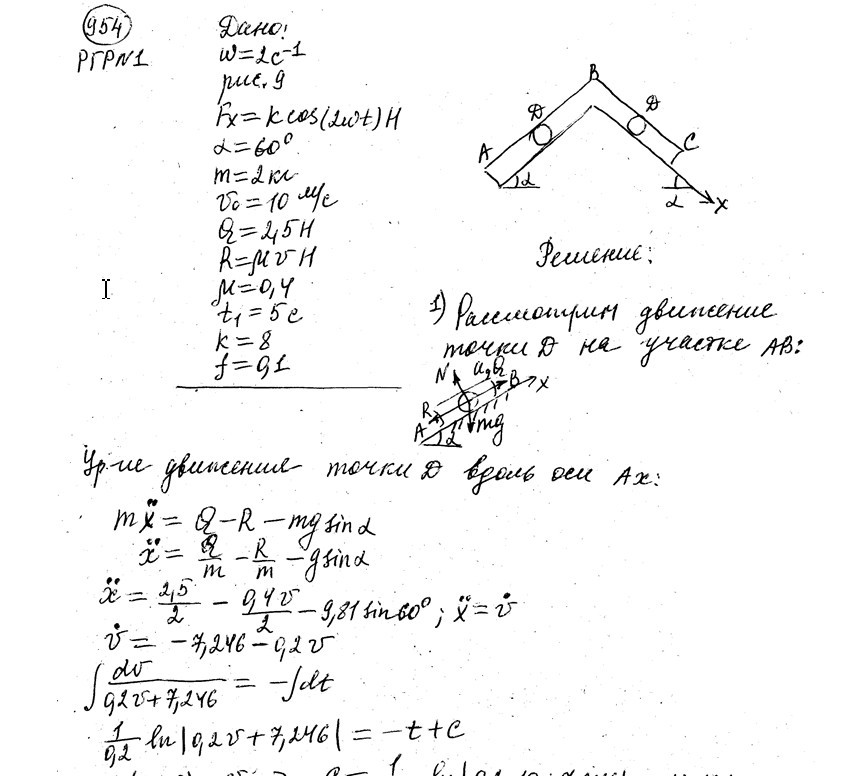 954
РГР№1
Дано:
w=2c⁻¹
рис. 9
Fx=k cos(2wt) H
α=60°
m=2кг
v₀=10 м/с
Q=2,5H
R=μvH
μ=0,4
t₁=5c
k=8
f=0,1
B
D
D
A
C
α
α
x
Решение:
1) Рассмотрим движение
точки D на участке AB:
N
a, Q
B
x
R
A
α
mg
Ур-ие движения точки D вдоль оси Ax:
mẍ = Q - R - mg sin α
ẍ = Q/m - R/m - g sin α
ẍ = 2,5/2 - 0,4v/2 - 9,81 sin 60°; ẍ = v̇
v̇ = -7,246 - 0,2v
∫ dv/(0,2v+7,246) = -∫dt
1/0,2 ln|0,2v+7,246| = -t+c